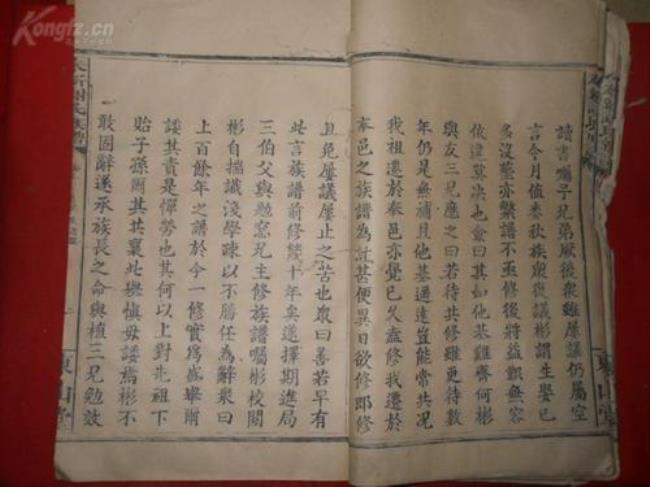 讀書囑子兄弟厥後衆雖屢議仍屬空
言今月值春秋族衆復議彬謂生娶已
多沒塟亦繁譜不亟修後將益艱無容
依違莫决也僉曰其如他基難齊何彬
與友三兄應之曰若待共修雖更待數
年仍是無補且他基遥遠豈能常共况
我祖遷於奉邑亦覺已久盍修我遷於
奉邑之族譜為計甚便異日欲修即修
且免屢議屢止之苦也衆曰善若早有
此言族譜前修幾十年矣遂擇期進局
三伯父與勉窓兄主修族譜囑彬校閱
彬自揣識淺學踈以不勝任為辭衆曰
上百餘年之譜於今一修實為盛舉爾
諉其責是憚勞也其何以上對先祖下
貽子孫爾其共襄此舉慎毋諉焉彬不
敢固辭遂承族長之命與植三兄勉效
奉新謝氏族譜
東山堂
東山堂
Kongfz.cn